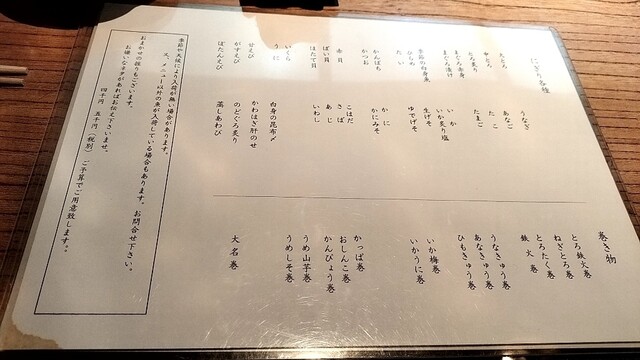 にぎり各種
大とろ
中とろ
とろ炙り
まぐろ赤身
まぐろ漬け
季節の白身魚
ひらめ
たい
かんぱち
かつお
赤貝
ばい貝
ほたて貝
いくら
うに
甘えび
がすえび
ぼたんえび
うなぎ
あなご
たこ
たまご
いか
いか炙り塩
生げそ
ゆでげそ
かに
かにみそ
こはだ
さば
あじ
いわし
白身の昆布〆
かわはぎ肝のせ
のどぐろ炙り
蒸しあわび
巻き物
とろ鉄火巻
ねぎとろ巻
とろたく巻
鉄火巻
うなきゅう巻
あなきゅう巻
ひもきゅう巻
いか梅巻
いかうに巻
かっぱ巻
おしんこ巻
かんぴょう巻
うめ山芋巻
うめしそ巻
大名巻
季節や天候により入荷が無い場合があります。
又、メニュー以外の魚が入荷している場合もあります。お問合せ下さい。
おまかせの握りもございます。
お嫌いなネタがあればお伝え下さいませ。
四千円 五千円(税別) ご予算でご用意致します。